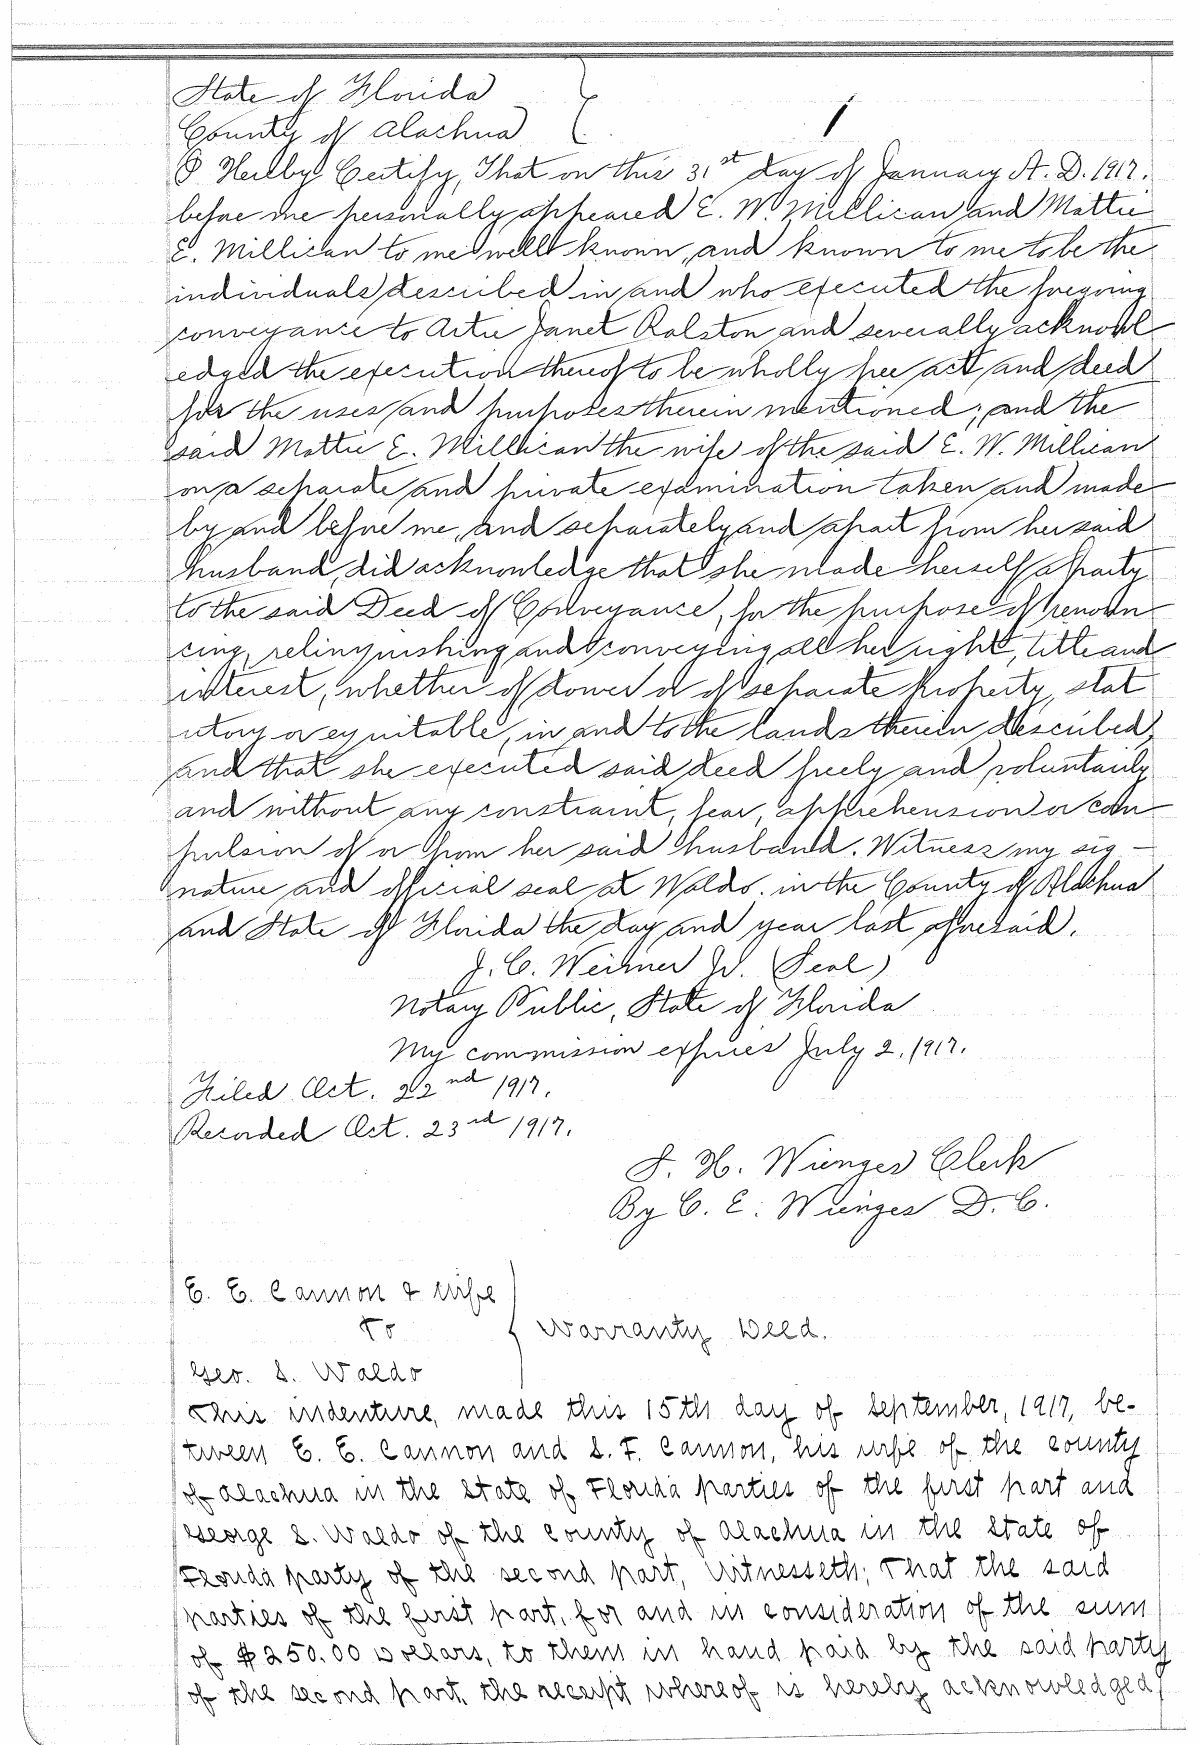 State of Florida
County of Alachua
I Hereby Certify, That on this 31st day of January A. D. 1917.
before me personally appeared E. W. Millican and Mattie
E. Millican to me well known, and known to me to be the
individuals described in and who executed the foregoing
conveyance to Artie Janet Ralston and severally acknowl
edged the execution thereof to be wholly free act and deed
for the uses and purposes therein mentioned; and the
said Mattie E. Millican the wife of the said E. W. Millican
on a separate and private examination taken and made
by and before me, and separately and apart from her said
husband, did acknowledge that she made herself a party
to the said Deed of Conveyance, for the purpose of renoun
cing, relinquishing and conveying all her right, title and
interest, whether of dower or of separate property, stat
utory or equitable, in and to the lands therein described,
and that she executed said deed freely and voluntarily
and without any constraint, fear, apprehension or com
pulsion of or from her said husband. Witness my sig-
nature and official seal at Waldo. in the County of Alachua
and State of Florida the day and year last aforesaid.
J. C. Weimer Jr. (Seal)
Notary Public, State of Florida
My commission expires July 2, 1917.
Filed Oct. 22nd 1917.
Recorded Oct. 23rd 1917.
S. H. Wienges Clerk
By C. E. Wienges D. C.
E. E. Cannon & Wife
To
Warranty Deed.
Geo. S. Waldo
This indenture, made this 15th day of September, 1917, be-
tween E. E. Cannon and S. F. Cannon, his wife of the county
of Alachua in the State of Florida parties of the first part and
George S. Waldo of the county of Alachua in the State of
Florida party of the second part, Witnesseth; That the said
parties of the first part, for and in consideration of the sum
of $250.00 Dollars, to them in hand paid by the said party
of the second part, the receipt whereof is hereby acknowledged,